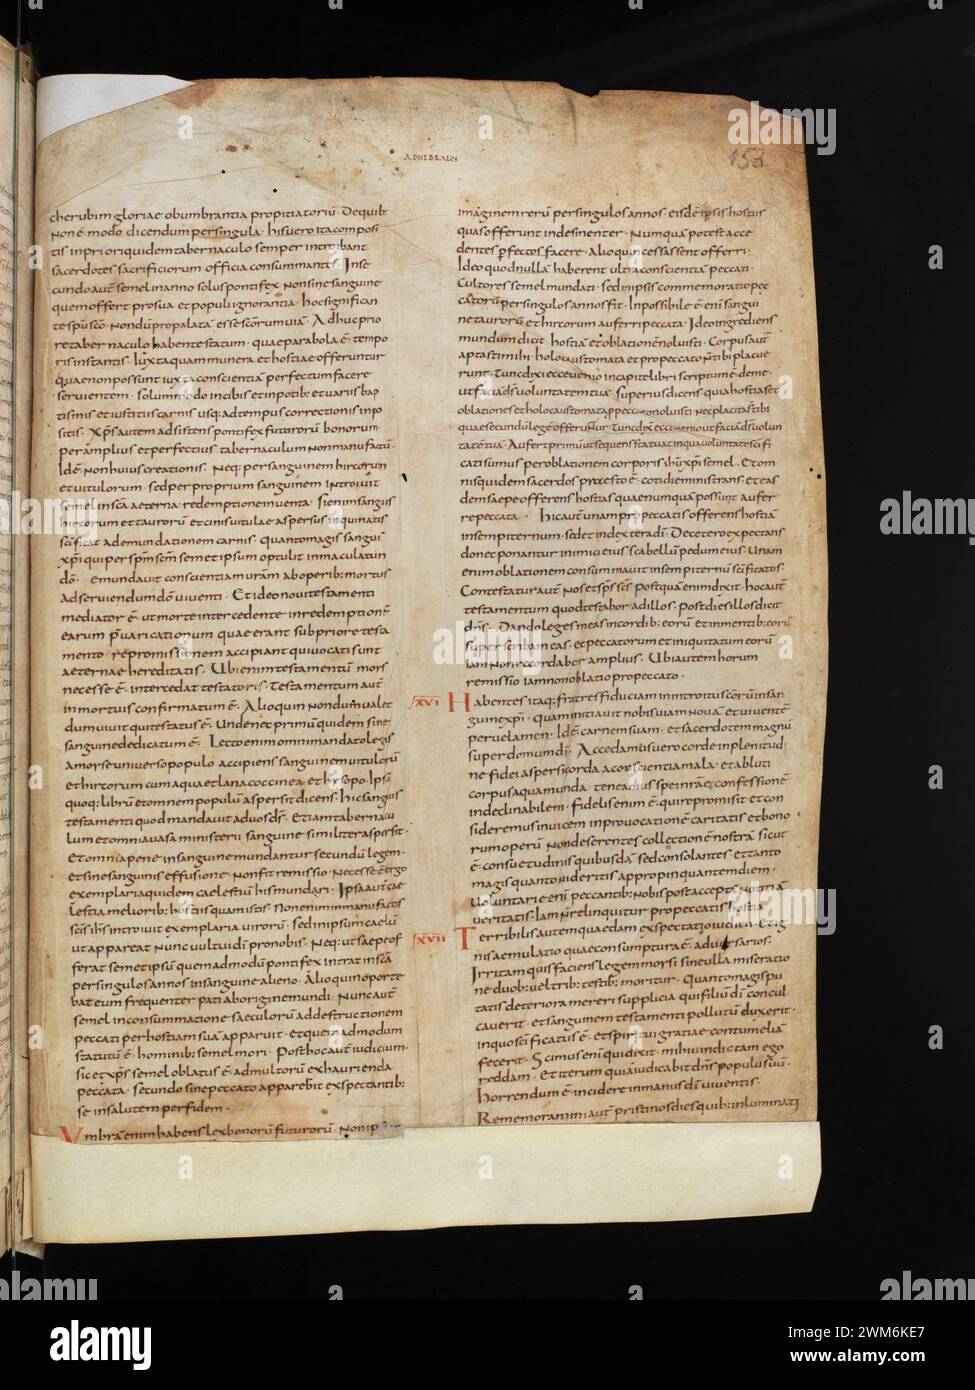 AD HEBRAEOS
153
cherubim gloriae obumbrantia propitiatoriū. De quib;
non ē modo dicendum per singula. His uero ita composi
tis in priori quidem tabernaculo semper introibant
sacerdotes sacrificiorum officia consummantes. In se
cundo aut̄ semel in anno solus pontifex non sine sanguine
quem offert pro sua et populi ignorantia. hoc significan
te sp̄u sc̄o. nondū propalatā esse sc̄orum uiā. Adhuc prio
re tabernaculo habente statum. quae parabola ē tempo
ris instantis. Iuxta quam munera et hostiae offeruntur
quae non possunt iuxta conscientiā perfectum facere
seruientem. solummodo in cibis et in potib; et uariis bap
tismis et iustitiis carnis usq; ad tempus correctionis inpo
sitis. Xp̄s autem adsistens pontifex futurorū bonorum.
per amplius et perfectius tabernaculum non manu factū.
Id ē non huius creationis. Neq; per sanguinem hircorum
et uitulorum. sed per proprium sanguinem introiuit
semel in sc̄a aeterna redemptione inuenta. Si enim sanguis
hircorum et taurorū et cinis uitulae aspersus inquinatos
sc̄ificat ad emundationem carnis. quanto magis sanguis
xp̄i qui per sp̄m sc̄m semet ipsum optulit inmaculatum
dō. emundauit conscientiam nr̄am ab operib; mortuis
ad seruiendum dō uiuenti. Et ideo noui testamenti
mediator ē. ut morte intercedente in redemptionē
earum p̄uaricationum quae erant sub priore testa
mento. repromissionem accipiant qui uocati sunt
aeternae hereditatis. Ubi enim testamentū mors
necesse ē. intercedat testatoris. Testamentum aut̄
in mortuis confirmatum ē. Alioquin nondum ualet
dum uiuit qui testatus ē. Unde nec primū quidem sine
sanguine dedicatum ē. Lecto enim omni mandato legis
a morse uniuerso populo accipiens sanguinem uitulorū
et hircorum cum aqua et lana coccinea et hysopo. Ipsū
quoq; librū et omnem populū aspersit dicens. hic sanguis
testamenti quod mandauit ad uos d̄s. Etiam tabernacu
lum et omnia uasa ministerii sanguine similiter aspersit.
Et omnia pene in sanguine mundantur secundū legem.
et sine sanguinis effusione non fit remissio. Necesse ē ergo
exemplaria quidem caelestiū his mundari. Ipsa aut̄ cae
lestia meliorib; hostiis quam istis. Non enim in manu factis
sc̄is ih̄s introiuit exemplaria uerorū. sed in ipsum caelū
ut appareat nunc uultui dī pro nobis. Neq; ut saepe of
ferat semet ipsū quem admodū pontifex intrat in sc̄a
per singulos annos in sanguine alieno. Alioquin oporte
bat eum frequenter pati ab origine mundi. Nunc aut̄
semel in consummatione saeculorū ad destructionem
peccati per hostiam suā apparuit. et quem admodum
statutū ē. hominib; semel mori. Post hoc aut̄ iudicium.
sic et xp̄s semel oblatus ē. ad multorū exhaurienda
peccata. secundo sine peccato apparebit exspectantib;
se in salutem per fidem.
Vmbrā enim habens lex bonorū futurorū. non ipsam
imaginem rerū per singulos annos. eisdē ipsis hostiis
quas offerunt indesinenter. Numquā potest acce
dentes p̄fectos facere. Alioquin cessassent offerri.
Ideo quod nullā haberent ultra conscientiā peccati.
Cultores semel mundati. sed in ipsis commemoratio pec
catorū per singulos annos fit. Inpossibile ē enī sangui
ne taurorū et hircorum auferri peccata. Ideo ingrediens
mundum dicit. hostiā et oblationē noluisti. Corpus aut̄
aptasti mihi. holocaustomata et pro peccato n̄ tibi placue
runt. Tunc dixi ecce uenio in capite libri scriptū ē de me.
ut faciā d̄s uoluntatem tuā. Superius dicens quia hostias et
oblationes et holocaustomata pro pecc noluisti nec placita s̄t tibi
quae secundū legē offeruntur. Tunc dixi ecce uenio ut faciā d̄s uolun
tatē tuā. Aufert primū ut sequens statuat in qua uoluntate sc̄ifi
cati sumus per oblationem corporis ih̄u xp̄i semel. Et om
nis quidem sacerdos praesto ē. cotidie ministrans. et eas
dem saepe offerens hostias quae numquā possunt aufer
re peccata. Hic aut̄ unam pro peccatis offerens hostiā
in sempiternum. sedet in dextera dī. De cetero expectans
donec ponantur inimici eius scabellū pedum eius. Unam
enim oblationem consummauit in sempiternū sc̄ificatos.
Contestatur aut̄ nos et sp̄s sc̄s. Postquā enim dixit. hoc aut̄
testamentum quod testabor ad illos. post dies illos dicit
dn̄s. Dando leges meas in cordib; eorū et in mentib; eorū
superscribam eas. et peccatorum et iniquitatum eorū
iam non recordabor amplius. Ubi autem horum
remissio iam non oblatio pro peccato.
XVI Habentes itaq; fratres fiduciam in introitu sc̄orū in san
guine xp̄i. Quam initiauit nobis uiam nouā et uiuentē
per uelamen. Id ē carnem suam. et sacerdotem magnū
super domum dī. Accedam; uero corde in plenitudi
ne fidei aspersi corda a conscientia mala. et abluti
corpus aqua munda. teneamus spei nr̄ae confessionē
indeclinabilem. Fidelis enim ē. qui repromisit. et con
sideremus inuicem in prouocationē caritatis et bono
rum operū. Non deserentes collectionē nostrā. sicut
ē consuetudinis quibusdā. sed consolantes. et tanto
magis quanto uideritis appropinquantem diem.
Voluntarie enī peccantib; nobis post acceptā notitiā
ueritatis. Iam n̄ relinquitur pro peccatis hostia.
XVII Terribilis autem quaedam exspectatio iudicii. Et ig
nis aemulatio quae consumptura ē aduersarios.
Irritam quis faciens legem morsi sine ulla miseratio
ne duob; uel trib; testib; moritur. Quanto magis pu
tatis deteriora mereri supplicia qui filiū dī concul
cauerit. et sanguinem testamenti pollutū duxerit.
in quo sc̄ificatus ē. et spiritui gratiae contumeliā
fecerit. Scimus enī qui dixit. mihi uindictam ego
reddam. Et iterum quia iudicabit dn̄s populū suū.
Horrendum ē. incidere in manus dī uiuentis.
Rememoramini aut̄ pristinos dies quib; inluminati
alamy
Image ID: 2WM6KE7
www.alamy.com